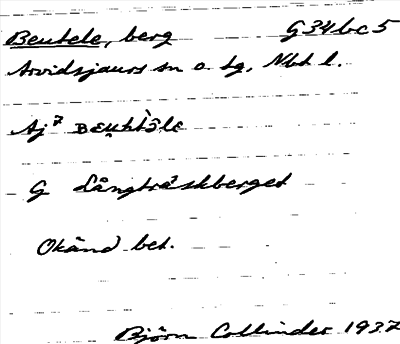 Beutele, berg G34bc5
Arvidsjaurs sn o. tg, Nbt l.
Aj⁷
G Långträskberget
Okänd bet.
Björn Collinder 1937